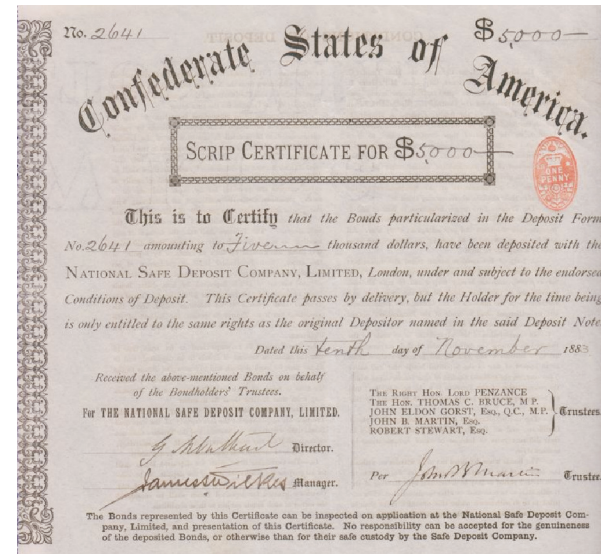 No. 2641
$5,000
Confederate States of America.
SCRIP CERTIFICATE FOR $5,000
ONE PENNY
This is to Certify that the Bonds particularized in the Deposit Form
No. 2641 amounting to Five thousand dollars, have been deposited with the
NATIONAL SAFE DEPOSIT COMPANY, LIMITED, London, under and subject to the endorsed
Conditions of Deposit. This Certificate passes by delivery, but the Holder for the time being
is only entitled to the same rights as the original Depositor named in the said Deposit Note
Dated this tenth day of November 1883
Received the above-mentioned Bonds on behalf
of the Bondholders' Trustees.
For THE NATIONAL SAFE DEPOSIT COMPANY, LIMITED.
Director.
James Wilkes Manager.
THE RIGHT HON. LORD PENZANCE
THE HON. THOMAS C. BRUCE, M P.
JOHN ELDON GORST, ESQ., Q.C., M.P.
JOHN B. MARTIN, ESQ.
ROBERT STEWART, ESQ.
Trustees
Per John B Martin Trustee
The Bonds represented by this Certificate can be inspected on application at the National Safe Deposit Com-
pany, Limited, and presentation of this Certificate. No responsibility can be accepted for the genuineness
of the deposited Bonds, or otherwise than for their safe custody by the Safe Deposit Company.